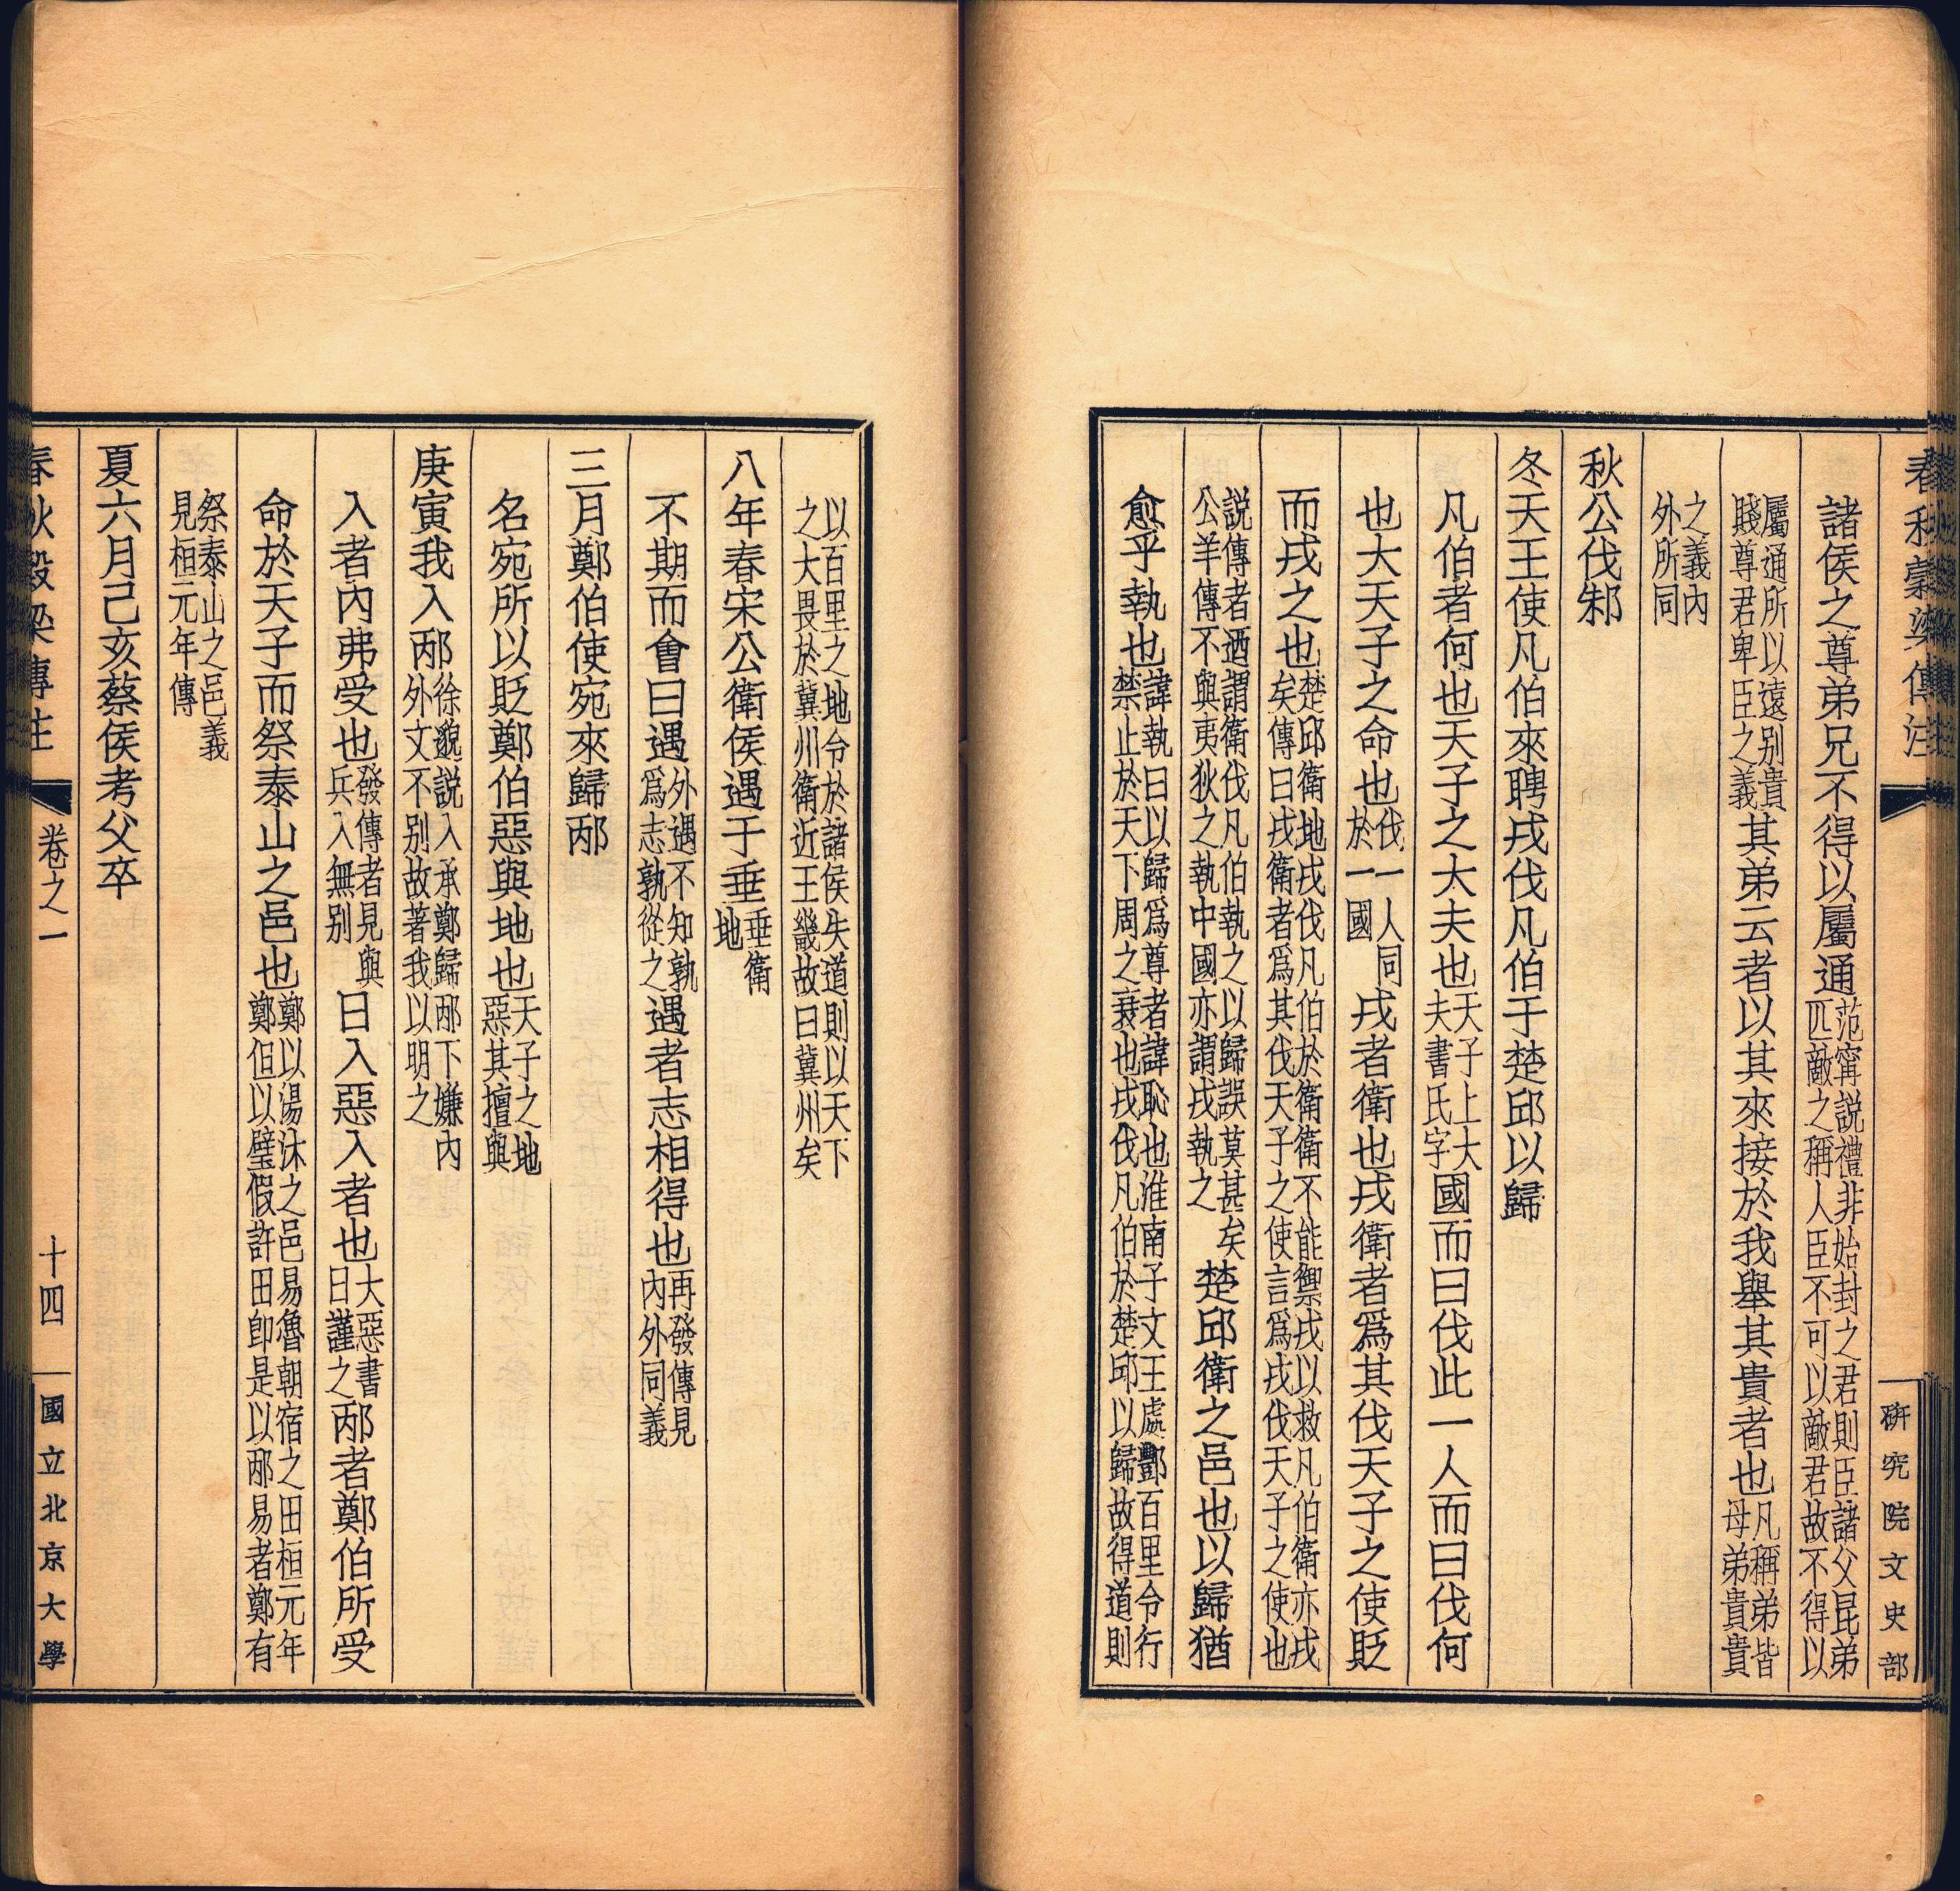 春秋榖梁傳注
研究院文史部
諸侯之尊弟兄不得以屬通范甯説禮非始封之君則臣諸父昆弟匹敵之稱人臣不可以敵君故不得以
屬通所以遠别貴賤尊君卑臣之義其弟云者以其來接於我舉其貴者也凡稱弟皆母弟貴貴
之義內外所同
秋公伐邾
冬天王使凡伯來聘戎伐凡伯于楚邱以歸
凡伯者何也天子之大夫也天子上大夫書氏字國而曰伐此一人而曰伐何
也大天子之命也伐一人同於一國戎者衛也戎衛者爲其伐天子之使貶
而戎之也楚邱衛地戎伐凡伯於衛衛不能禦戎以救凡伯衛亦戎矣傳曰戎衛者爲其伐天子之使言爲戎伐天子之使也
説傳者迺謂衛伐凡伯執之以歸誤莫甚矣公羊傳不與夷狄之執中國亦謂戎執之楚邱衛之邑也以歸猶
愈乎執也諱執曰以歸爲尊者諱恥也淮南子文王處酆百里令行禁止於天下周之衰也戎伐凡伯於楚邱以歸故得道則
以百里之地令於諸侯失道則以天下之大畏於冀州衛近王畿故曰冀州矣
八年春宋公衛侯遇于垂垂衛地
不期而會曰遇外遇不知孰爲志孰從之遇者志相得也再發傳見內外同義
三月鄭伯使宛來歸邴
名宛所以貶鄭伯惡與地也天子之地惡其擅與
庚寅我入邴徐邈説入承鄭歸邴下嫌內外文不别故著我以明之
入者內弗受也發傳者見與兵入無别日入惡入者也大惡書日謹之邴者鄭伯所受
命於天子而祭泰山之邑也鄭以湯沐之邑易魯朝宿之田桓元年鄭但以璧假許田卽是以邴易者鄭有
祭泰山之邑義見桓元年傳
夏六月己亥蔡侯考父卒
春秋穀梁傳注
卷之一
十四
國立北京大學